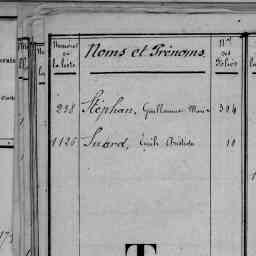 Numéros de la liste Noms et Prénoms. Nos des Folios
238 Stéphan, Guillaume Marie 304
1126 Suard, Emile Aristide 10
T